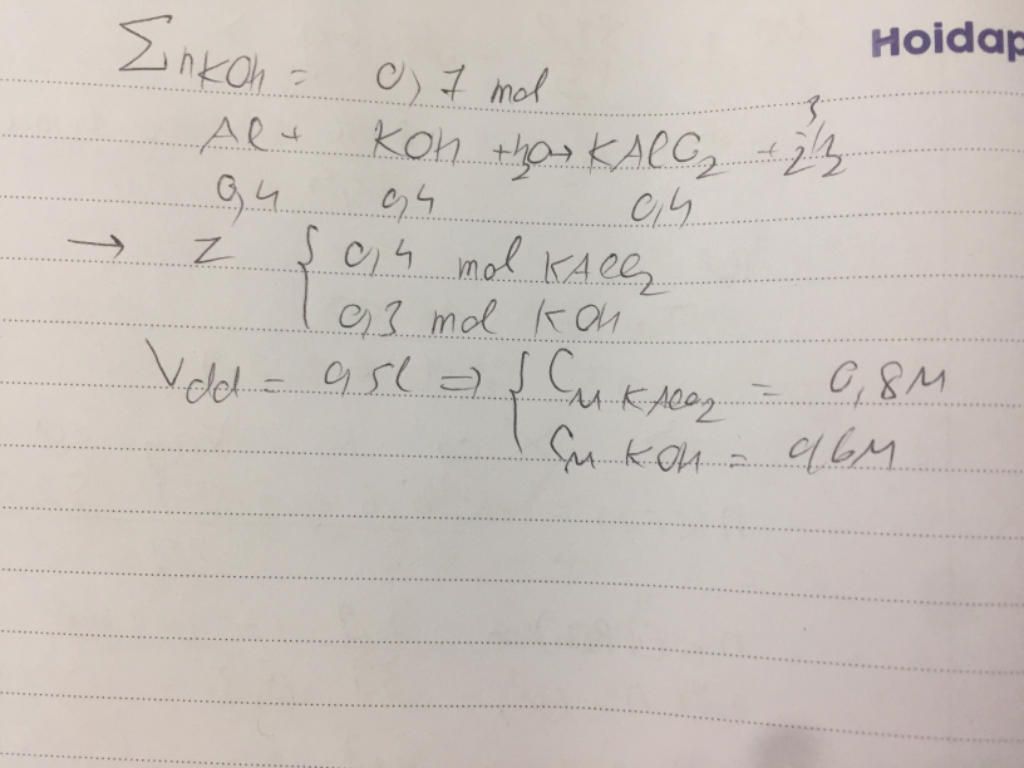 Hoidap
∑nKOH = 0,7 mol
Al + KOH + H2O → KAlO2 + 3/2 H2
0,4 0,4 0,4
→ Z { 0,4 mol KAlO2
0,3 mol KOH
Vdd = 0,5l ⇒ { CM KAlO2 = 0,8M
CM KOH = 0,6M